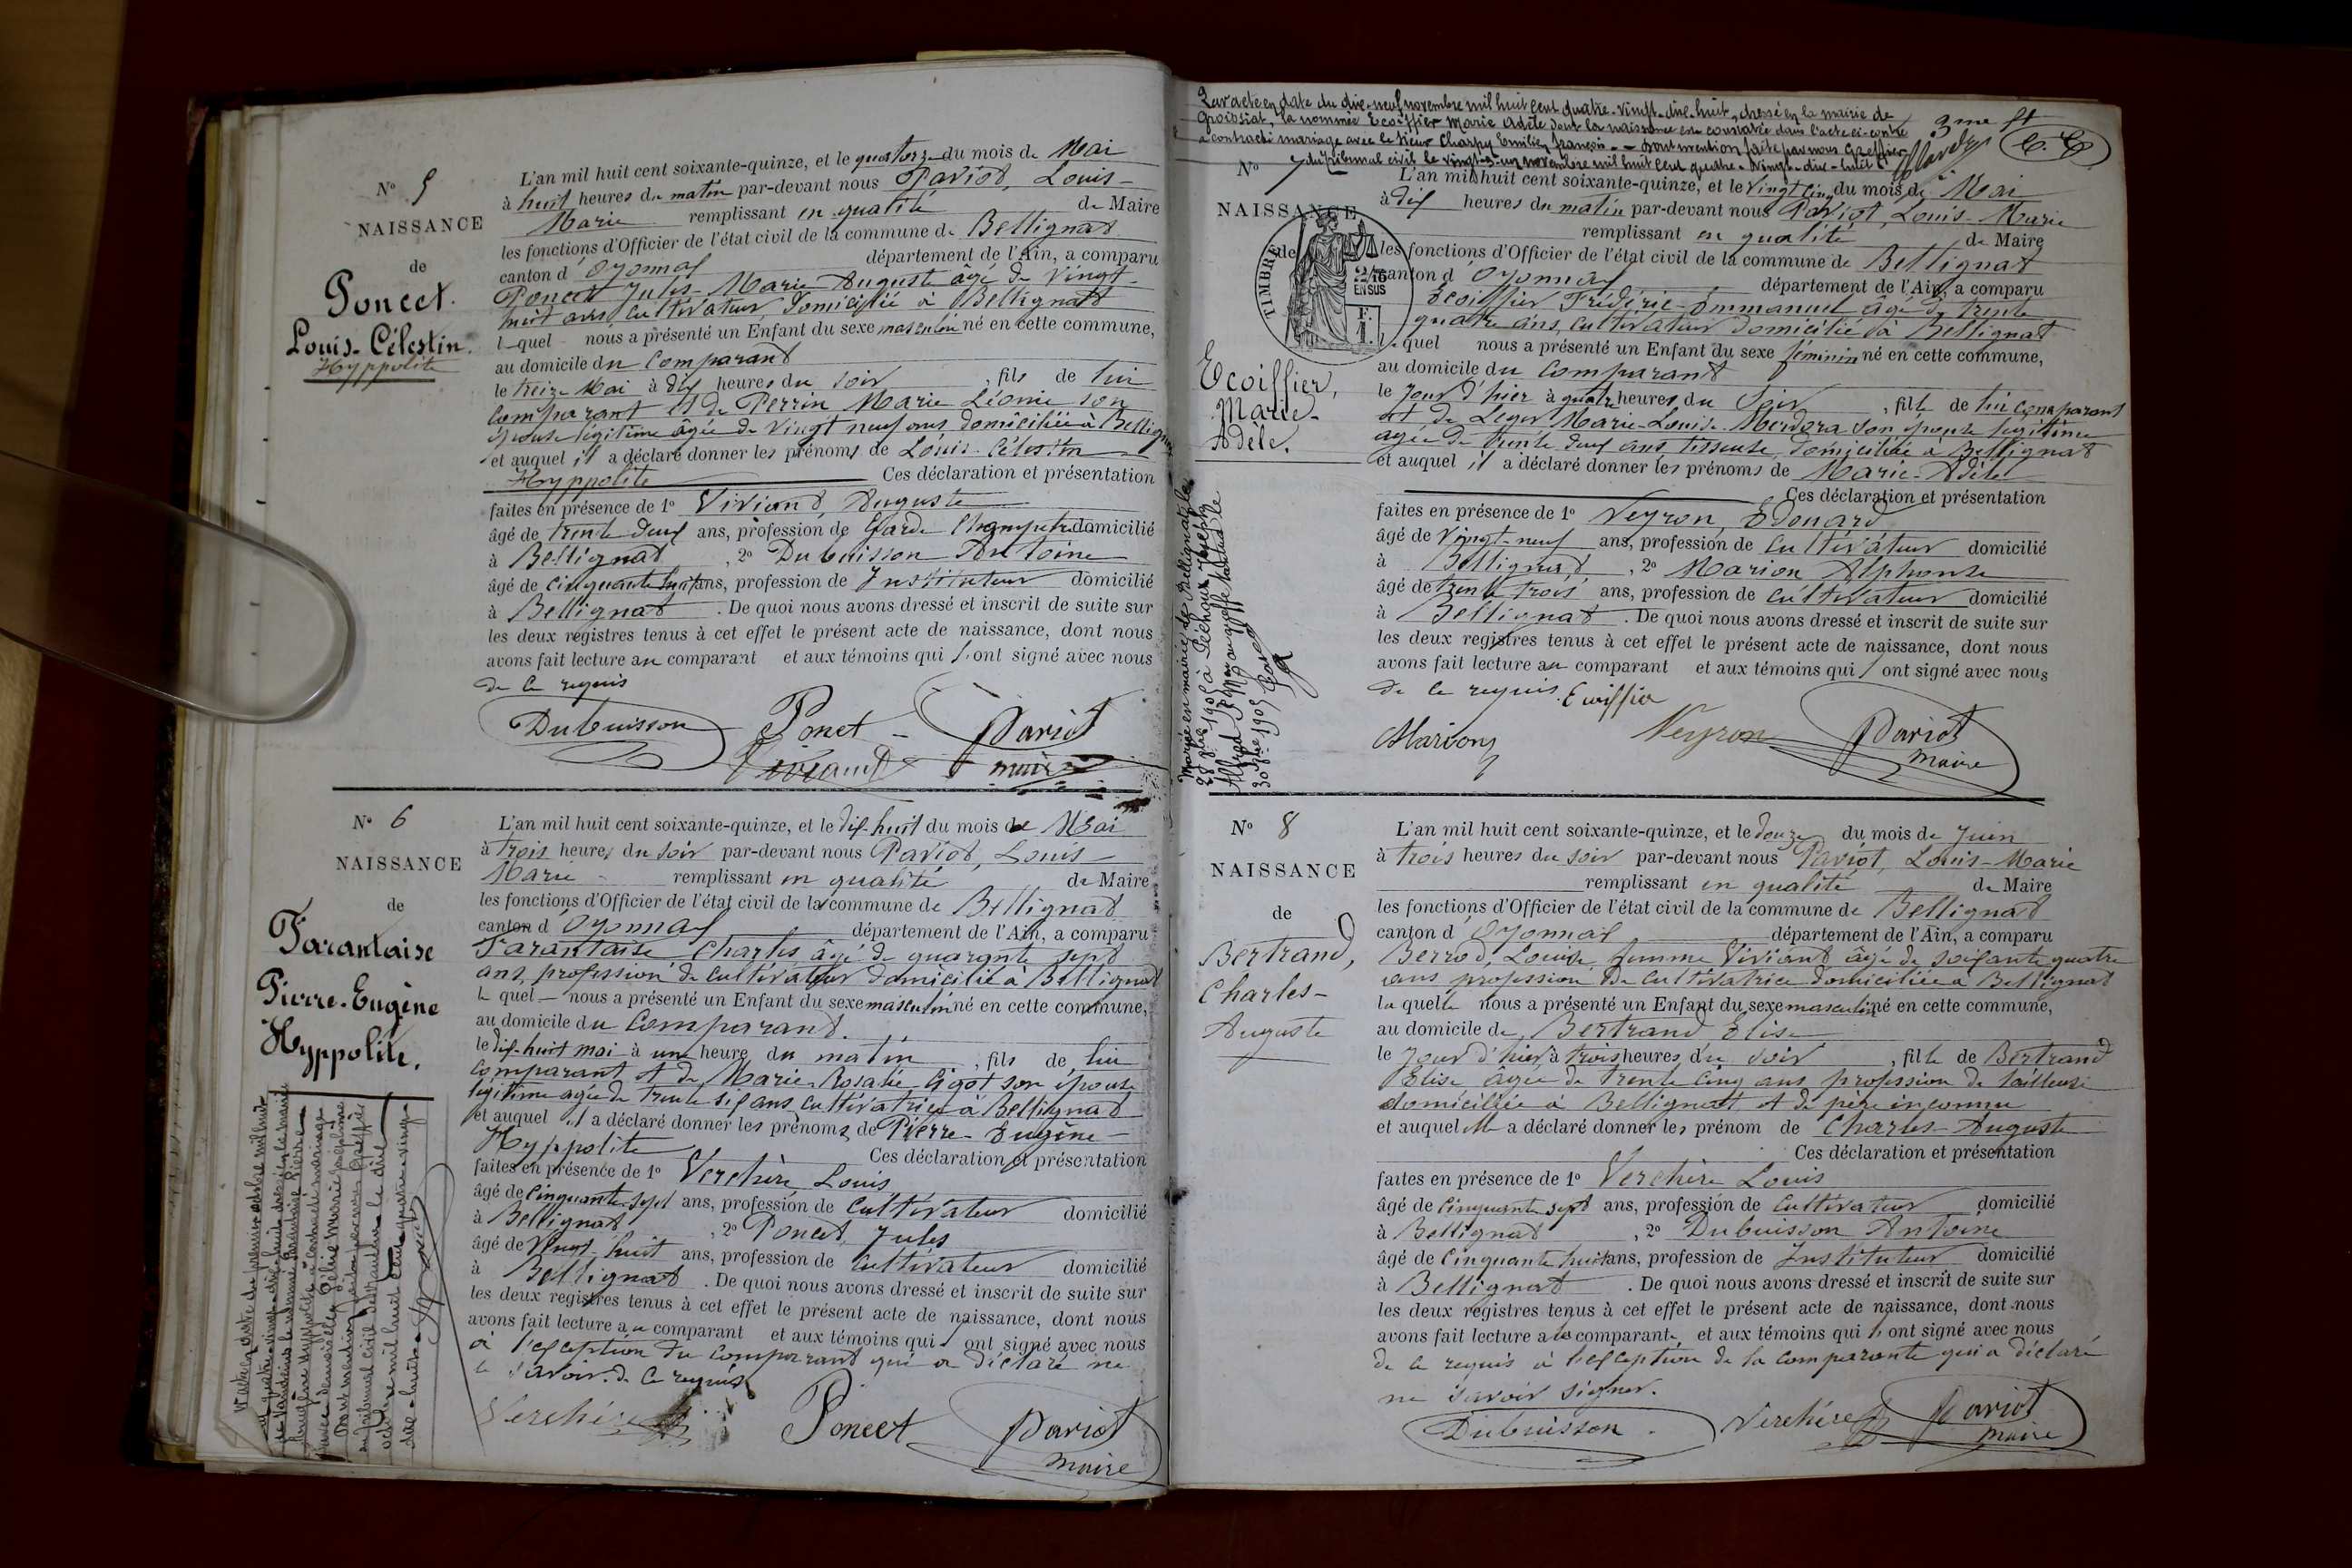 N° 5
NAISSANCE
de
Poncet
Louis-Célestin
Hyppolite
L'an mil huit cent soixante-quinze, et le quatorze du mois de Mai
à huit heures du matin par-devant nous Pariod, Louis-
Marie remplissant en qualité de Maire
les fonctions d'Officier de l'état civil de la commune de Bellignat
canton d'Oyonnax département de l'Ain, a comparu
Poncet Jules-Marie-Auguste âgé de vingt-
huit ans, cultivateur, domicilié à Bellignat
lequel nous a présenté un Enfant du sexe masculin né en cette commune,
au domicile du comparant
le treize Mai à dix heures du soir, fils de lui
comparant et de Perrin Marie Léonie son
épouse légitime âgée de vingt neuf ans domiciliée à Bellignat
et auquel il a déclaré donner les prénoms de Louis-Célestin
Hyppolite Ces déclaration et présentation
faites en présence de 1° Viviand, Auguste
âgé de trente deux ans, profession de Garde Champetre domicilié
à Bellignat, 2° Dubuisson Antoine
âgé de cinquante huit ans, profession de Instituteur domicilié
à Bellignat. De quoi nous avons dressé et inscrit de suite sur
les deux registres tenus à cet effet le présent acte de naissance, dont nous
avons fait lecture au comparant et aux témoins qui l'ont signé avec nous
de ce requis
Dubuisson Poncet Pariod
Viviand maire
N° 6
NAISSANCE
de
Tarantaise
Pierre-Eugène
Hyppolite.
L'an mil huit cent soixante-quinze, et le dix-huit du mois de Mai
à trois heures du soir par-devant nous Pariod, Louis-
Marie remplissant en qualité de Maire
les fonctions d'Officier de l'état civil de la commune de Bellignat
canton d'Oyonnax département de l'Ain, a comparu
Tarantaise Charles âgé de quarante sept
ans, profession de cultivateur domicilié à Bellignat
lequel nous a présenté un Enfant du sexe masculin né en cette commune,
au domicile du Comparant.
le dix-huit mai à une heure du matin, fils de lui
comparant et de Marie-Rosalie Gigot son épouse
légitime agée de trente six ans cultivatrice à Bellignat
et auquel il a déclaré donner les prénoms de Pierre-Eugène-
Hyppolite Ces déclaration et présentation
faites en présence de 1° Verchère Louis
âgé de cinquante-sept ans, profession de Cultivateur domicilié
à Bellignat, 2° Poncet, Jules
âgé de vingt-huit ans, profession de cultivateur domicilié
à Bellignat. De quoi nous avons dressé et inscrit de suite sur
les deux registres tenus à cet effet le présent acte de naissance, dont nous
avons fait lecture au comparant et aux témoins qui l'ont signé avec nous
à l'exception du comparant qui a déclaré ne
le savoir. de ce requis
Verchère Poncet Pariod
maire
Par acte en date du dix-neuf novembre mil huit cent quatre-vingt-dix-huit, dressé en la mairie de
Groissiat, la nommée Ecoiffier Marie Adèle dont la naissance est constatée dans l'acte ci-contre
a contracté mariage avec le sieur Charpy Emilien françois. - Dont mention faite par nous Greffier
du tribunal civil le vingt-et-un novembre mil huit cent quatre-vingt-dix-huit
N° 7
NAISSANCE
de
TIMBRE
2/10
EN SUS
Ecoiffier,
Marie-
Adèle.
L'an mil huit cent soixante-quinze, et le vingt cinq du mois de Mai
à dix heures du matin par-devant nous Pariod, Louis-Marie
remplissant en qualité de Maire
les fonctions d'Officier de l'état civil de la commune de Bellignat
canton d'Oyonnax département de l'Ain, a comparu
Ecoiffier Frédéric-Emmanuel âgé de trente
quatre ans, cultivateur domicilié à Bellignat
lequel nous a présenté un Enfant du sexe féminin né en cette commune,
au domicile du Comparant
le Jour d'hier à quatre heures du Soir, fille de lui comparant
et de Leger Marie-Louise-Meridora son épouse légitime
agée de trente deux ans tisseuse, domiciliée à Bellignat
et auquel il a déclaré donner les prénoms de Marie-Adèle
Ces déclaration et présentation
faites en présence de 1° Neyron, Edouard
âgé de vingt-neuf ans, profession de cultivateur domicilié
à Bellignat, 2° Marion Alphonse
âgé de trente trois ans, profession de cultivateur domicilié
à Bellignat. De quoi nous avons dressé et inscrit de suite sur
les deux registres tenus à cet effet le présent acte de naissance, dont nous
avons fait lecture au comparant et aux témoins qui l'ont signé avec nous
de ce requis. Ecoiffier
Marion Neyron Pariod
maire
N° 8
NAISSANCE
de
Bertrand,
Charles-
Auguste
L'an mil huit cent soixante-quinze, et le douze du mois de Juin
à trois heures du soir par-devant nous Pariod, Louis-Marie
remplissant en qualité de Maire
les fonctions d'Officier de l'état civil de la commune de Bellignat
canton d'Oyonnax département de l'Ain, a comparu
Berrod, Louise, femme Viviant âgée de soixante quatre
ans profession de cultivatrice domiciliée à Bellignat
laquelle nous a présenté un Enfant du sexe masculin né en cette commune,
au domicile de Bertrand Elise
le Jour d'hier à trois heures du soir, fils de Bertrand
Elise âgée de trente cinq ans profession de tailleuse
domiciliée à Bellignat et de père inconnu
et auquel elle a déclaré donner les prénom de Charles-Auguste
Ces déclaration et présentation
faites en présence de 1° Verchère Louis
âgé de cinquante sept ans, profession de Cultivateur domicilié
à Bellignat, 2° Dubuisson Antoine
âgé de cinquante huit ans, profession de Instituteur domicilié
à Bellignat. De quoi nous avons dressé et inscrit de suite sur
les deux registres tenus à cet effet le présent acte de naissance, dont nous
avons fait lecture a la comparante et aux témoins qui l'ont signé avec nous
de ce requis à l'exception de la comparante qui a déclaré
ne savoir signer.
Dubuisson Verchère Pariod
maire